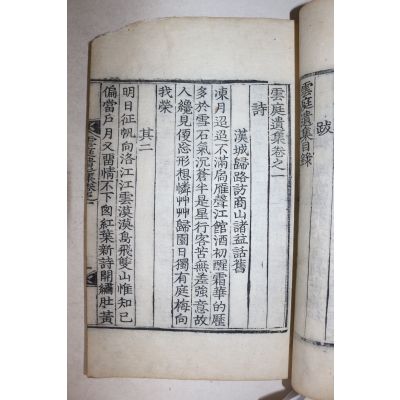 跋
雲庭遺集目錄
雲庭遺集卷之一
詩
漢城歸路訪商山諸益話舊
凍月迢迢不滿扃雁聲江館酒初醒霜華的歷
多於雪石氣沉蒼半是星行客苦無差強意故
人纔見便忘形想憐艸艸歸園日獨有庭梅向
我榮
其二
明日征帆向洛江江雲漠漠鳥飛雙山惟知己
偏當戶月又留情不下囱紅葉新詩開繡肚黃